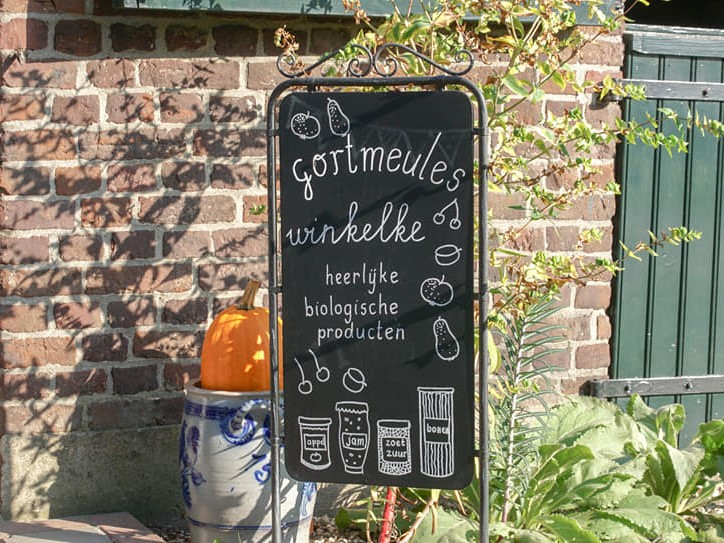 gortmeules
winkelke
heerlijke
biologische
producten
appel
jam
zoet
zuur
bonen